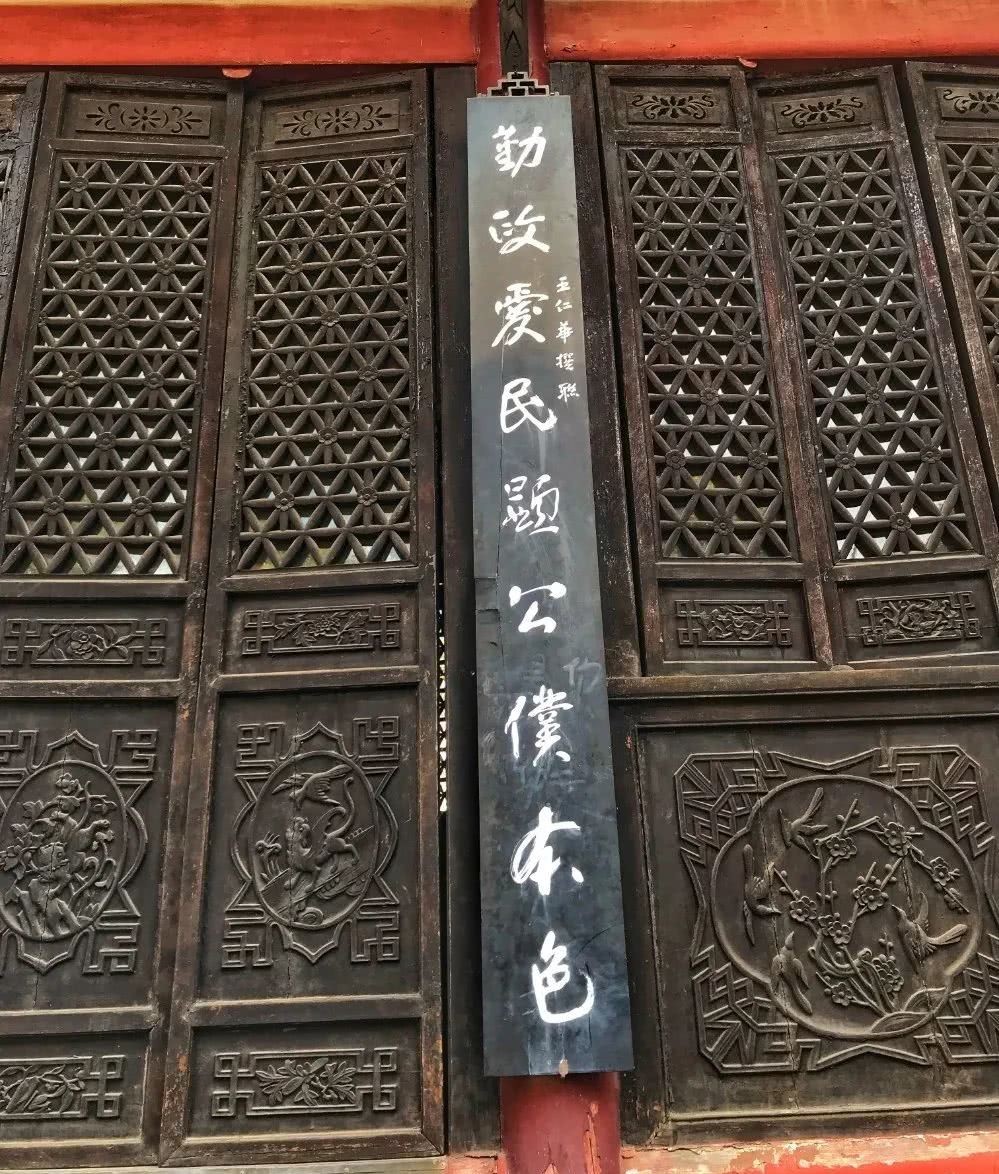 王仁华撰聯
勤政爱民顯公僕本色